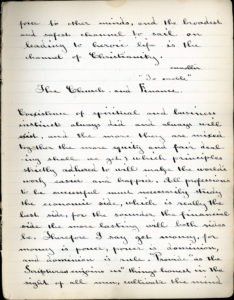 force to other minds, and the broadest
and safest channel to sail on
leading to heroic life is the
channel of Christianity.
"To
The Church and Finance.
Coexistence of spiritual and business
instinct always did and always will
exist, and the more they are mixed
together the more equity and fair deal-
ing shall we get, which principles
strictly adhered to will make the world's
work easier and happier. All professions
to be successful must necessarily study
the economic side, which is really the
last side, for the sounder the financial
side the more lasting will both sides
be. Therefore I say get money, for
money is power, power is dominion,
and dominion is rule. "Provide" as the
Scriptures enjoins us "things honest in the
sight of all men, cultivate the mind